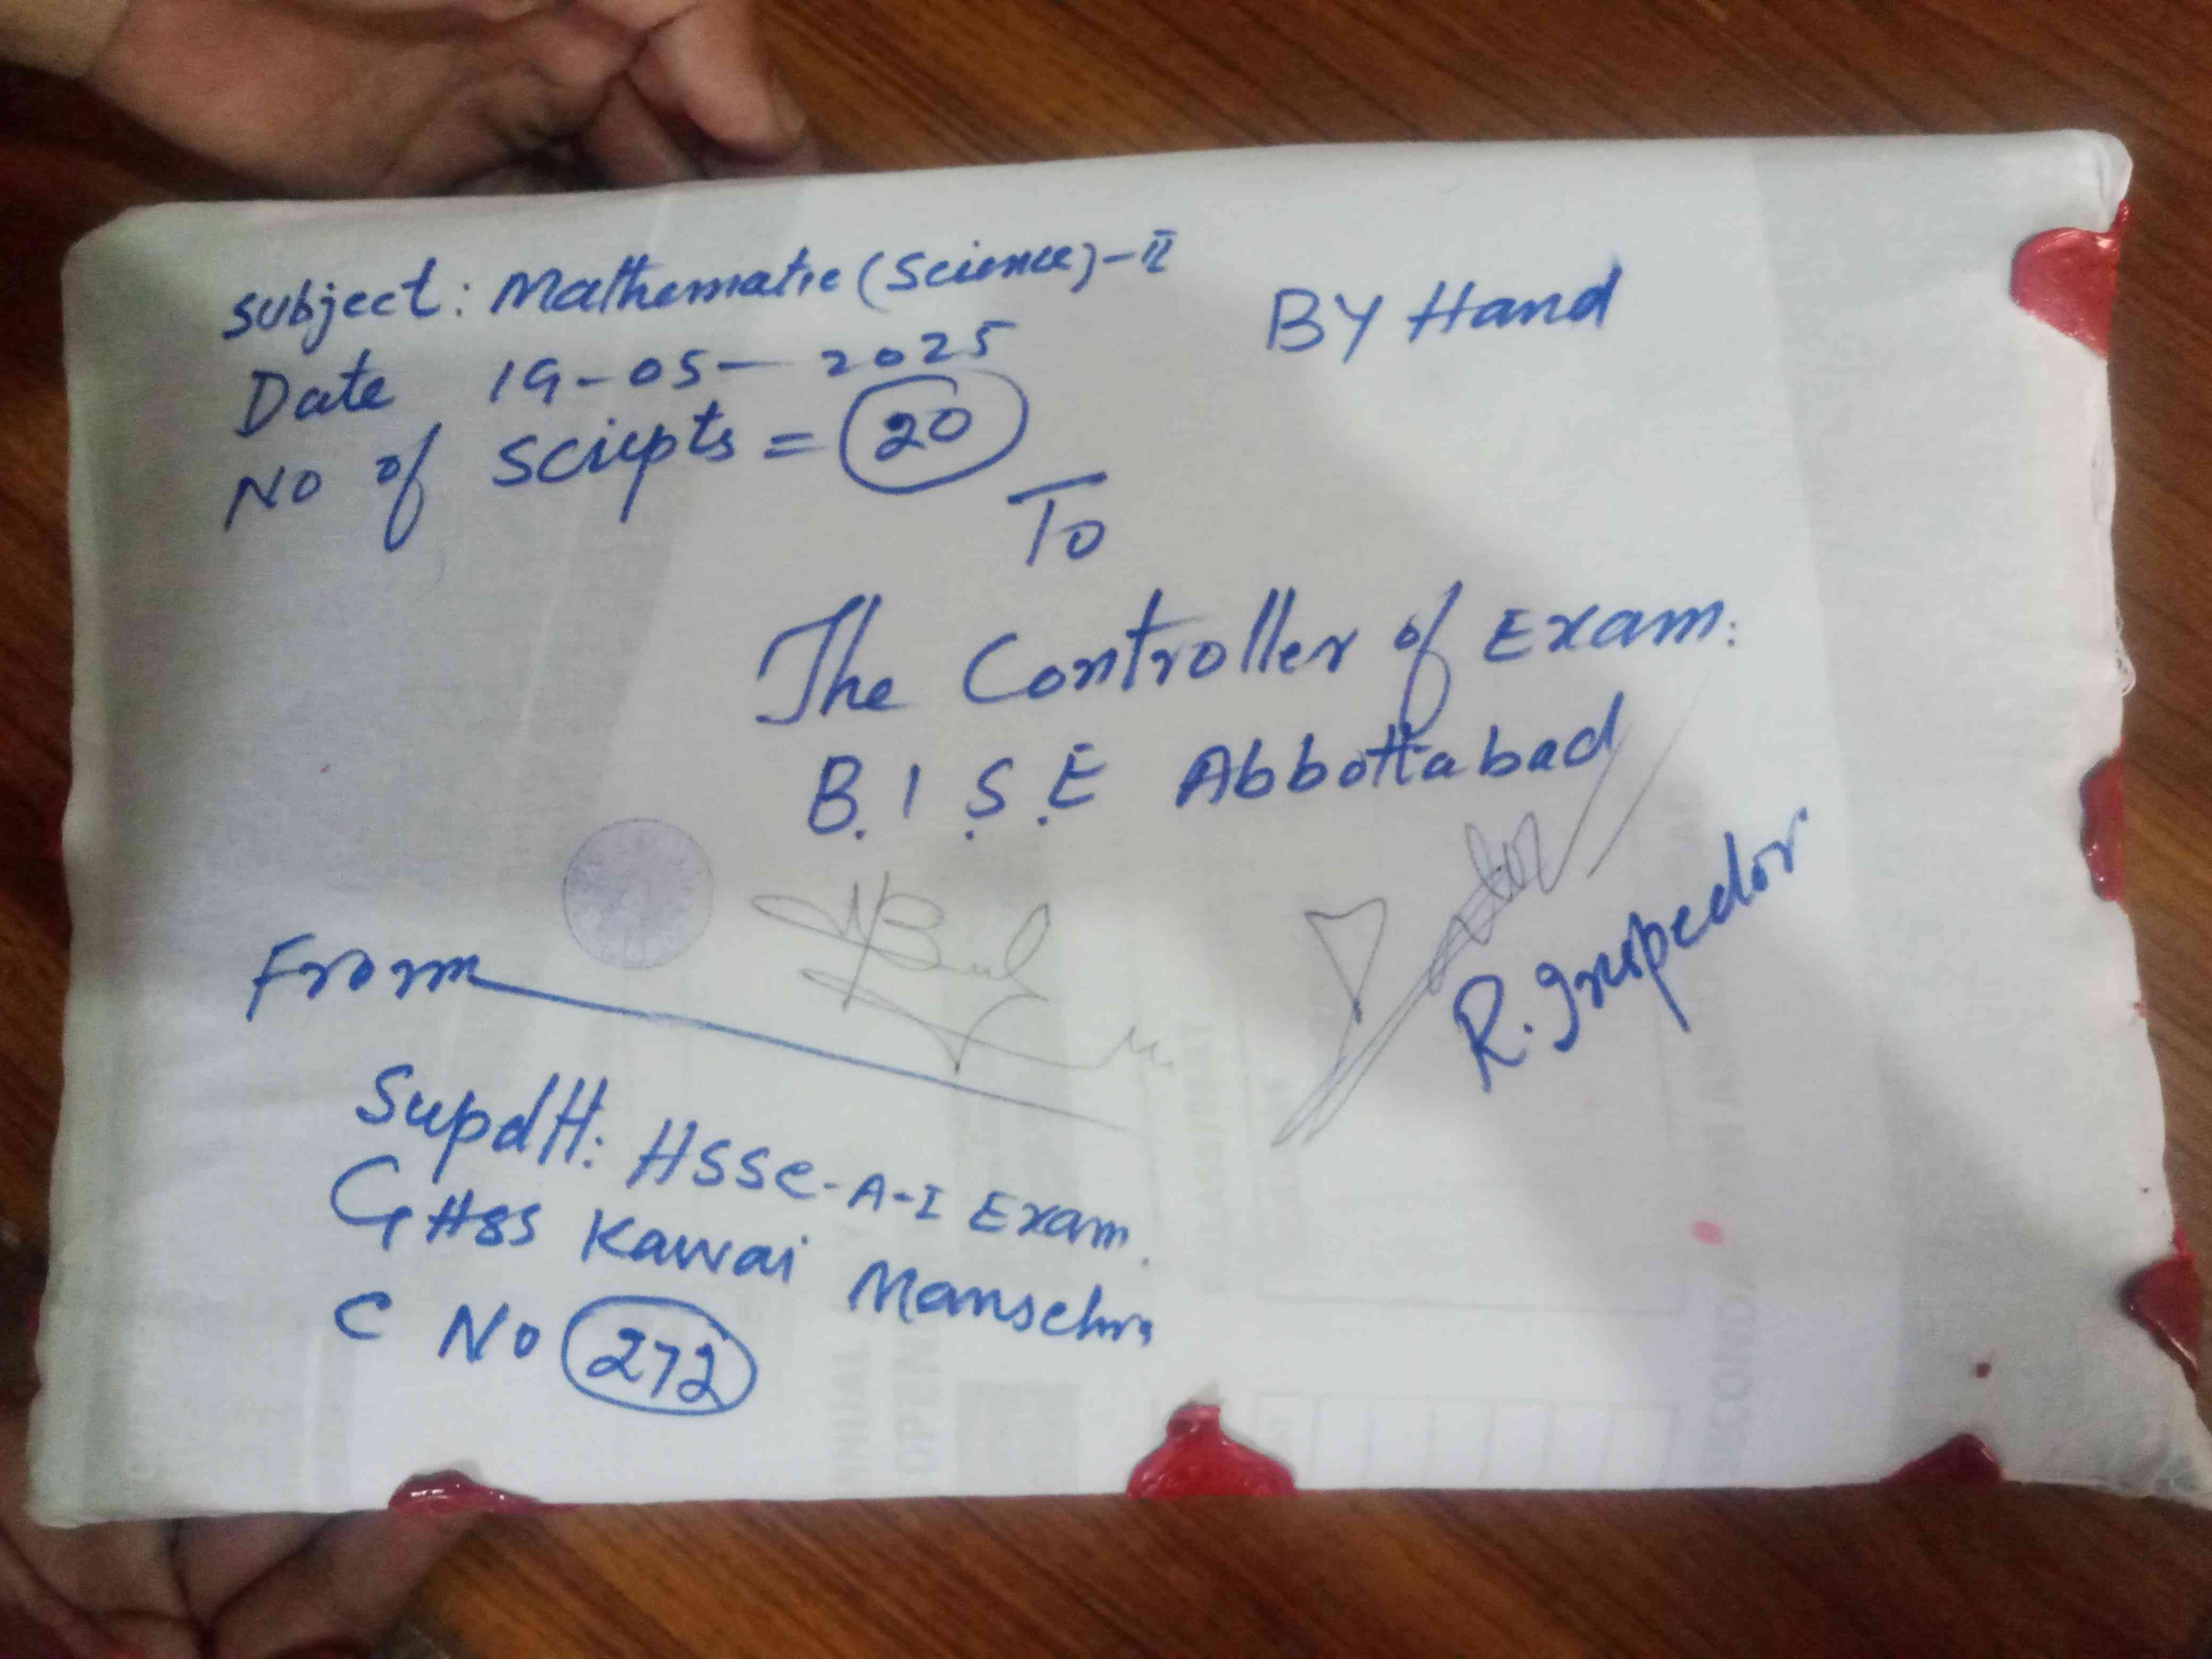 Subject: Mathematic (Science)-II
BY Hand
Date 19-05-2025
No of Scripts = 20
To
The Controller of Exam:
B.I.S.E Abbottabad
R. Inspector
From
Supdtt: HSSC-A-I Exam.
GHSS Kawai Mansehra
C No 272